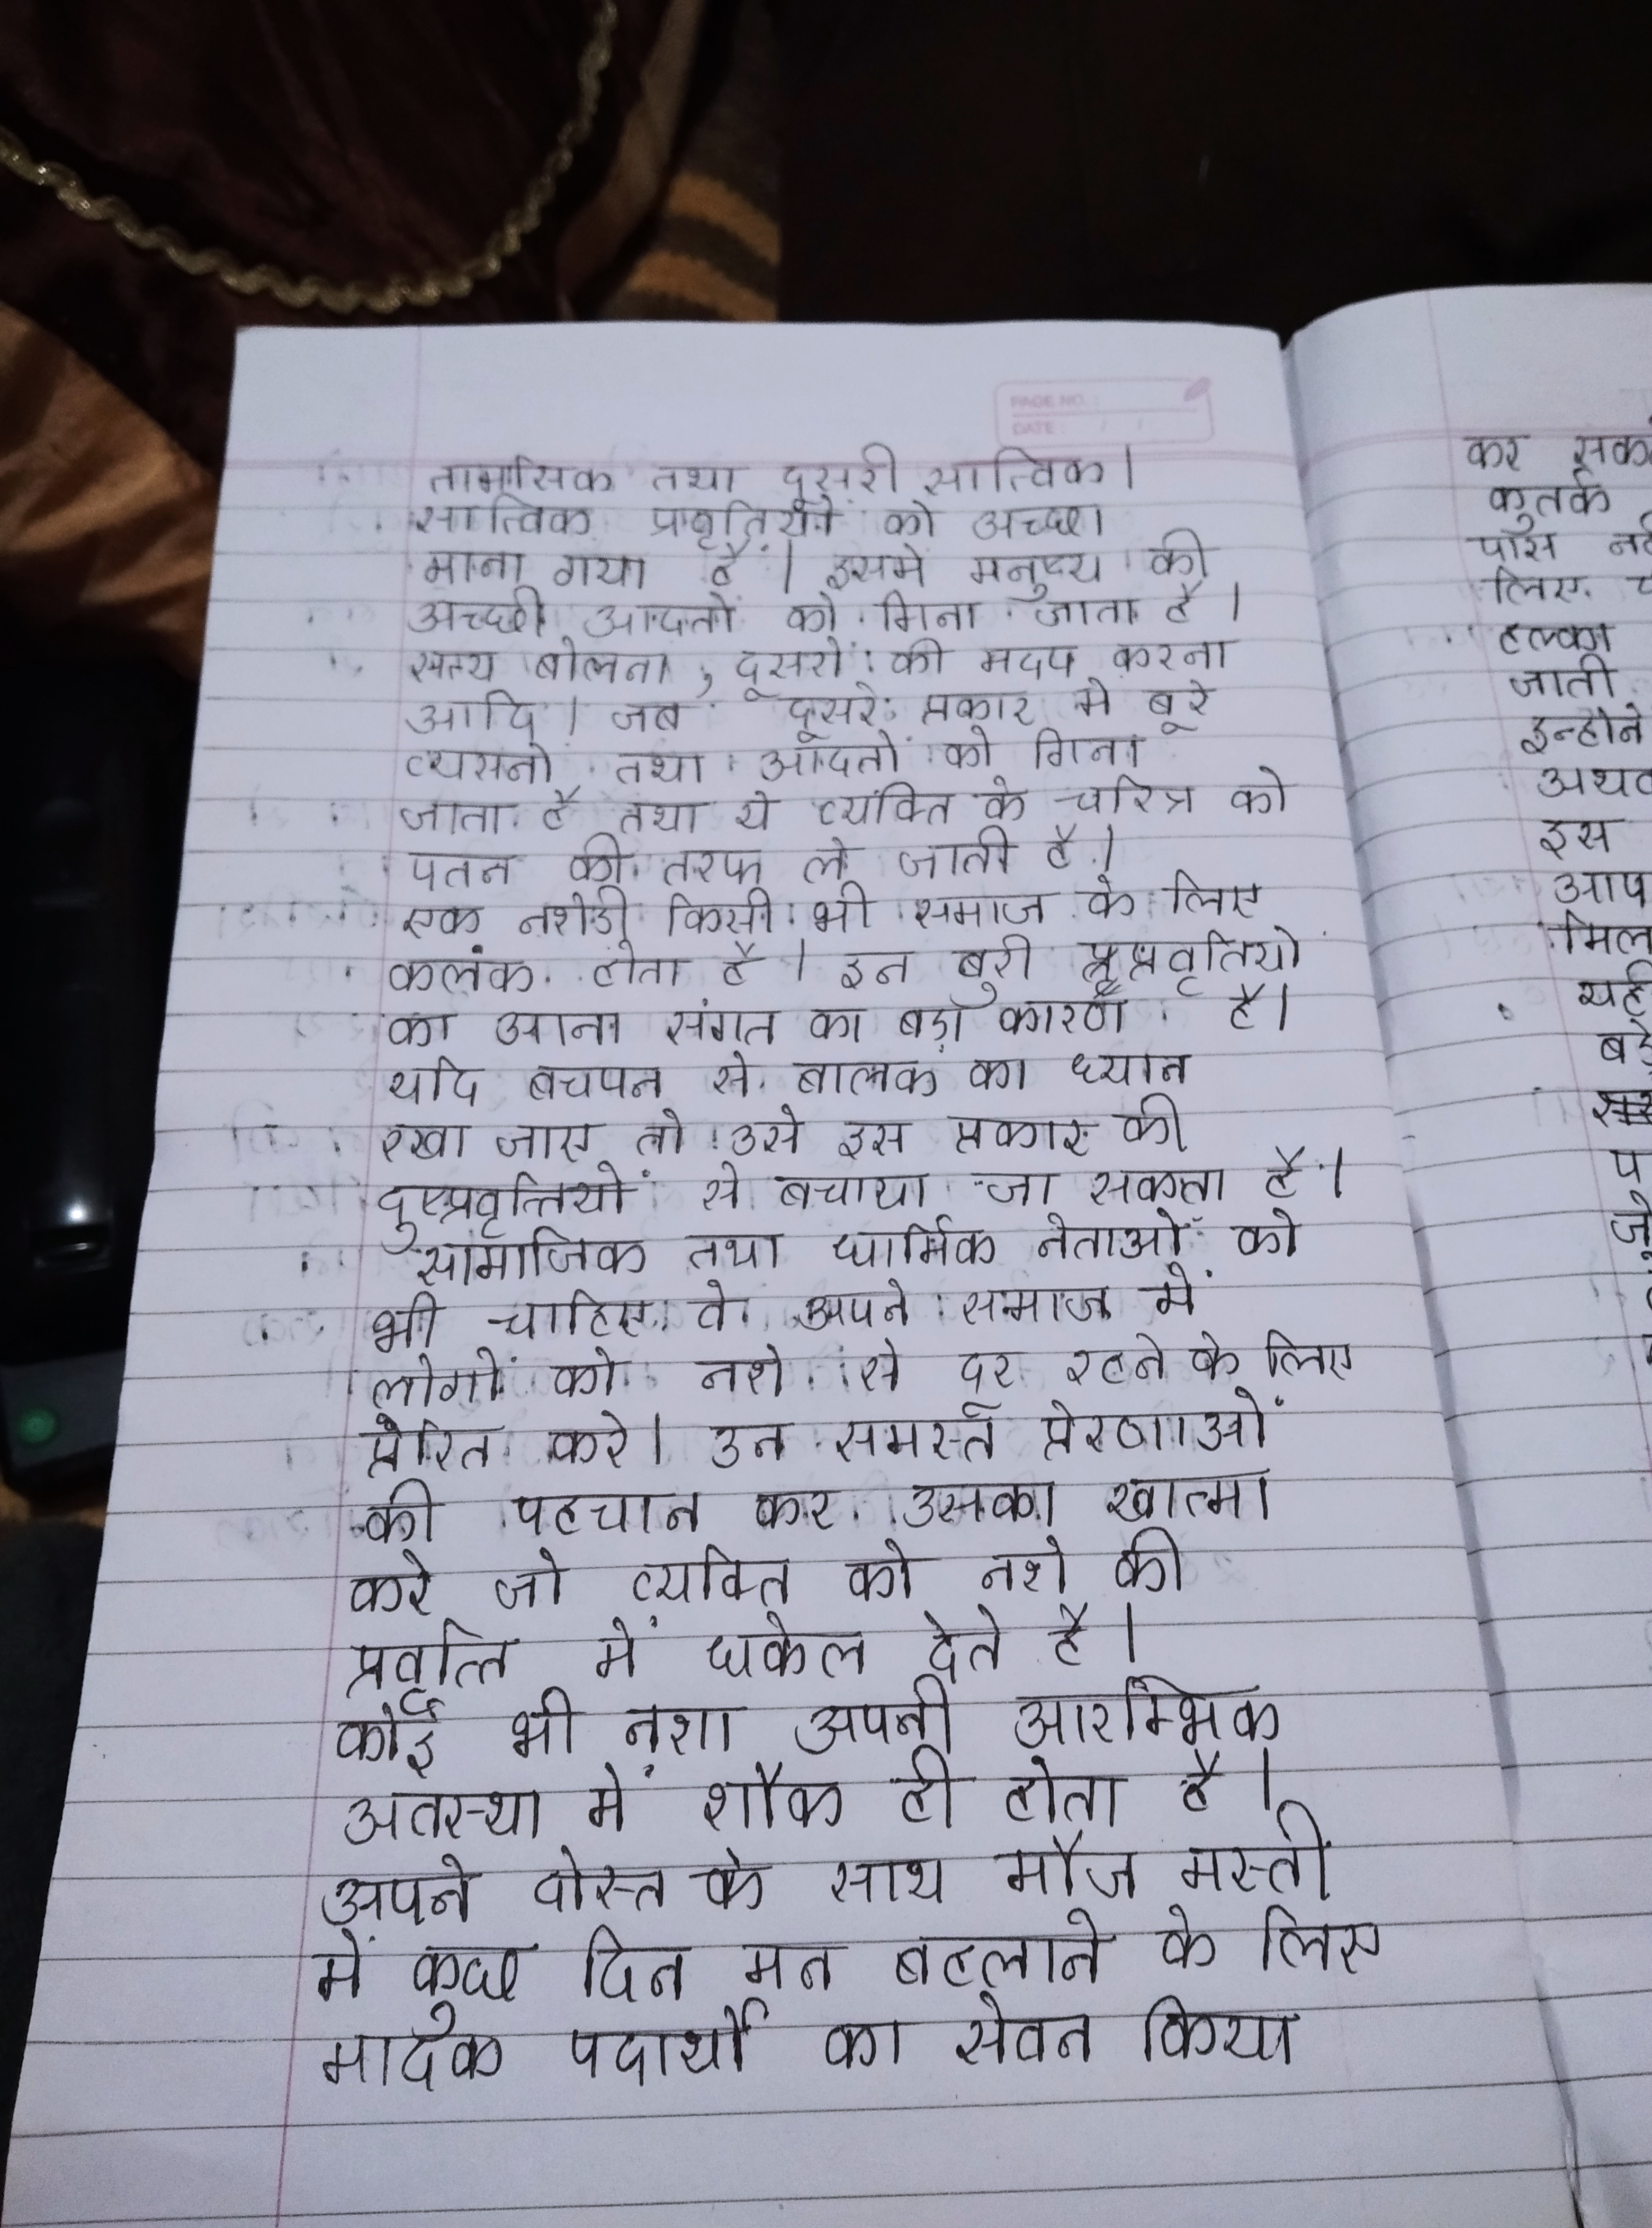 PAGE NO.:
DATE: / /
तामासिक तथा दूसरी सात्विक।
सात्विक प्रावृतियों को अच्छा
माना गया है। इसमे मनुष्य की
अच्छी आदतों को गिना जाता है।
सत्य बोलना, दूसरों की मदद करना
आदि। जब दूसरे प्रकार मे बूरे
व्यसनों तथा आदतों को गिना
जाता है तथा ये व्यक्ति के चरित्र को
पतन की तरफ ले जाती है।
एक नशेडी किसी भी समाज के लिए
कलंक होता है। इन बुरी प्रवृतियो
का आना संगत का बड़ा कारण है।
यदि बचपन से बालक का ध्यान
रखा जाए तो उसे इस प्रकार की
दुष्प्रवृत्तियों से बचाया जा सकता है।
सामाजिक तथा धार्मिक नेताओं को
भी चाहिए वे अपने समाज में
लोगों को नशे से दर रहने के लिए
प्रेरित करे। उन समस्त प्रेरणाओं
की पहचान कर उसका खात्मा
करे जो व्यक्ति को नशे की
प्रवृत्ति में धकेल देते है।
कोई भी नशा अपनी आरम्भिक
अतस्था में शौक ही होता है।
अपने दोस्त के साथ मौज मस्ती
में कुछ दिन मन बहलाने के लिए
मादक पदार्थों का सेवन किया
कर
कुतर्क
पास
लिए
हल्का
जाती
इन्होने
इस
आप